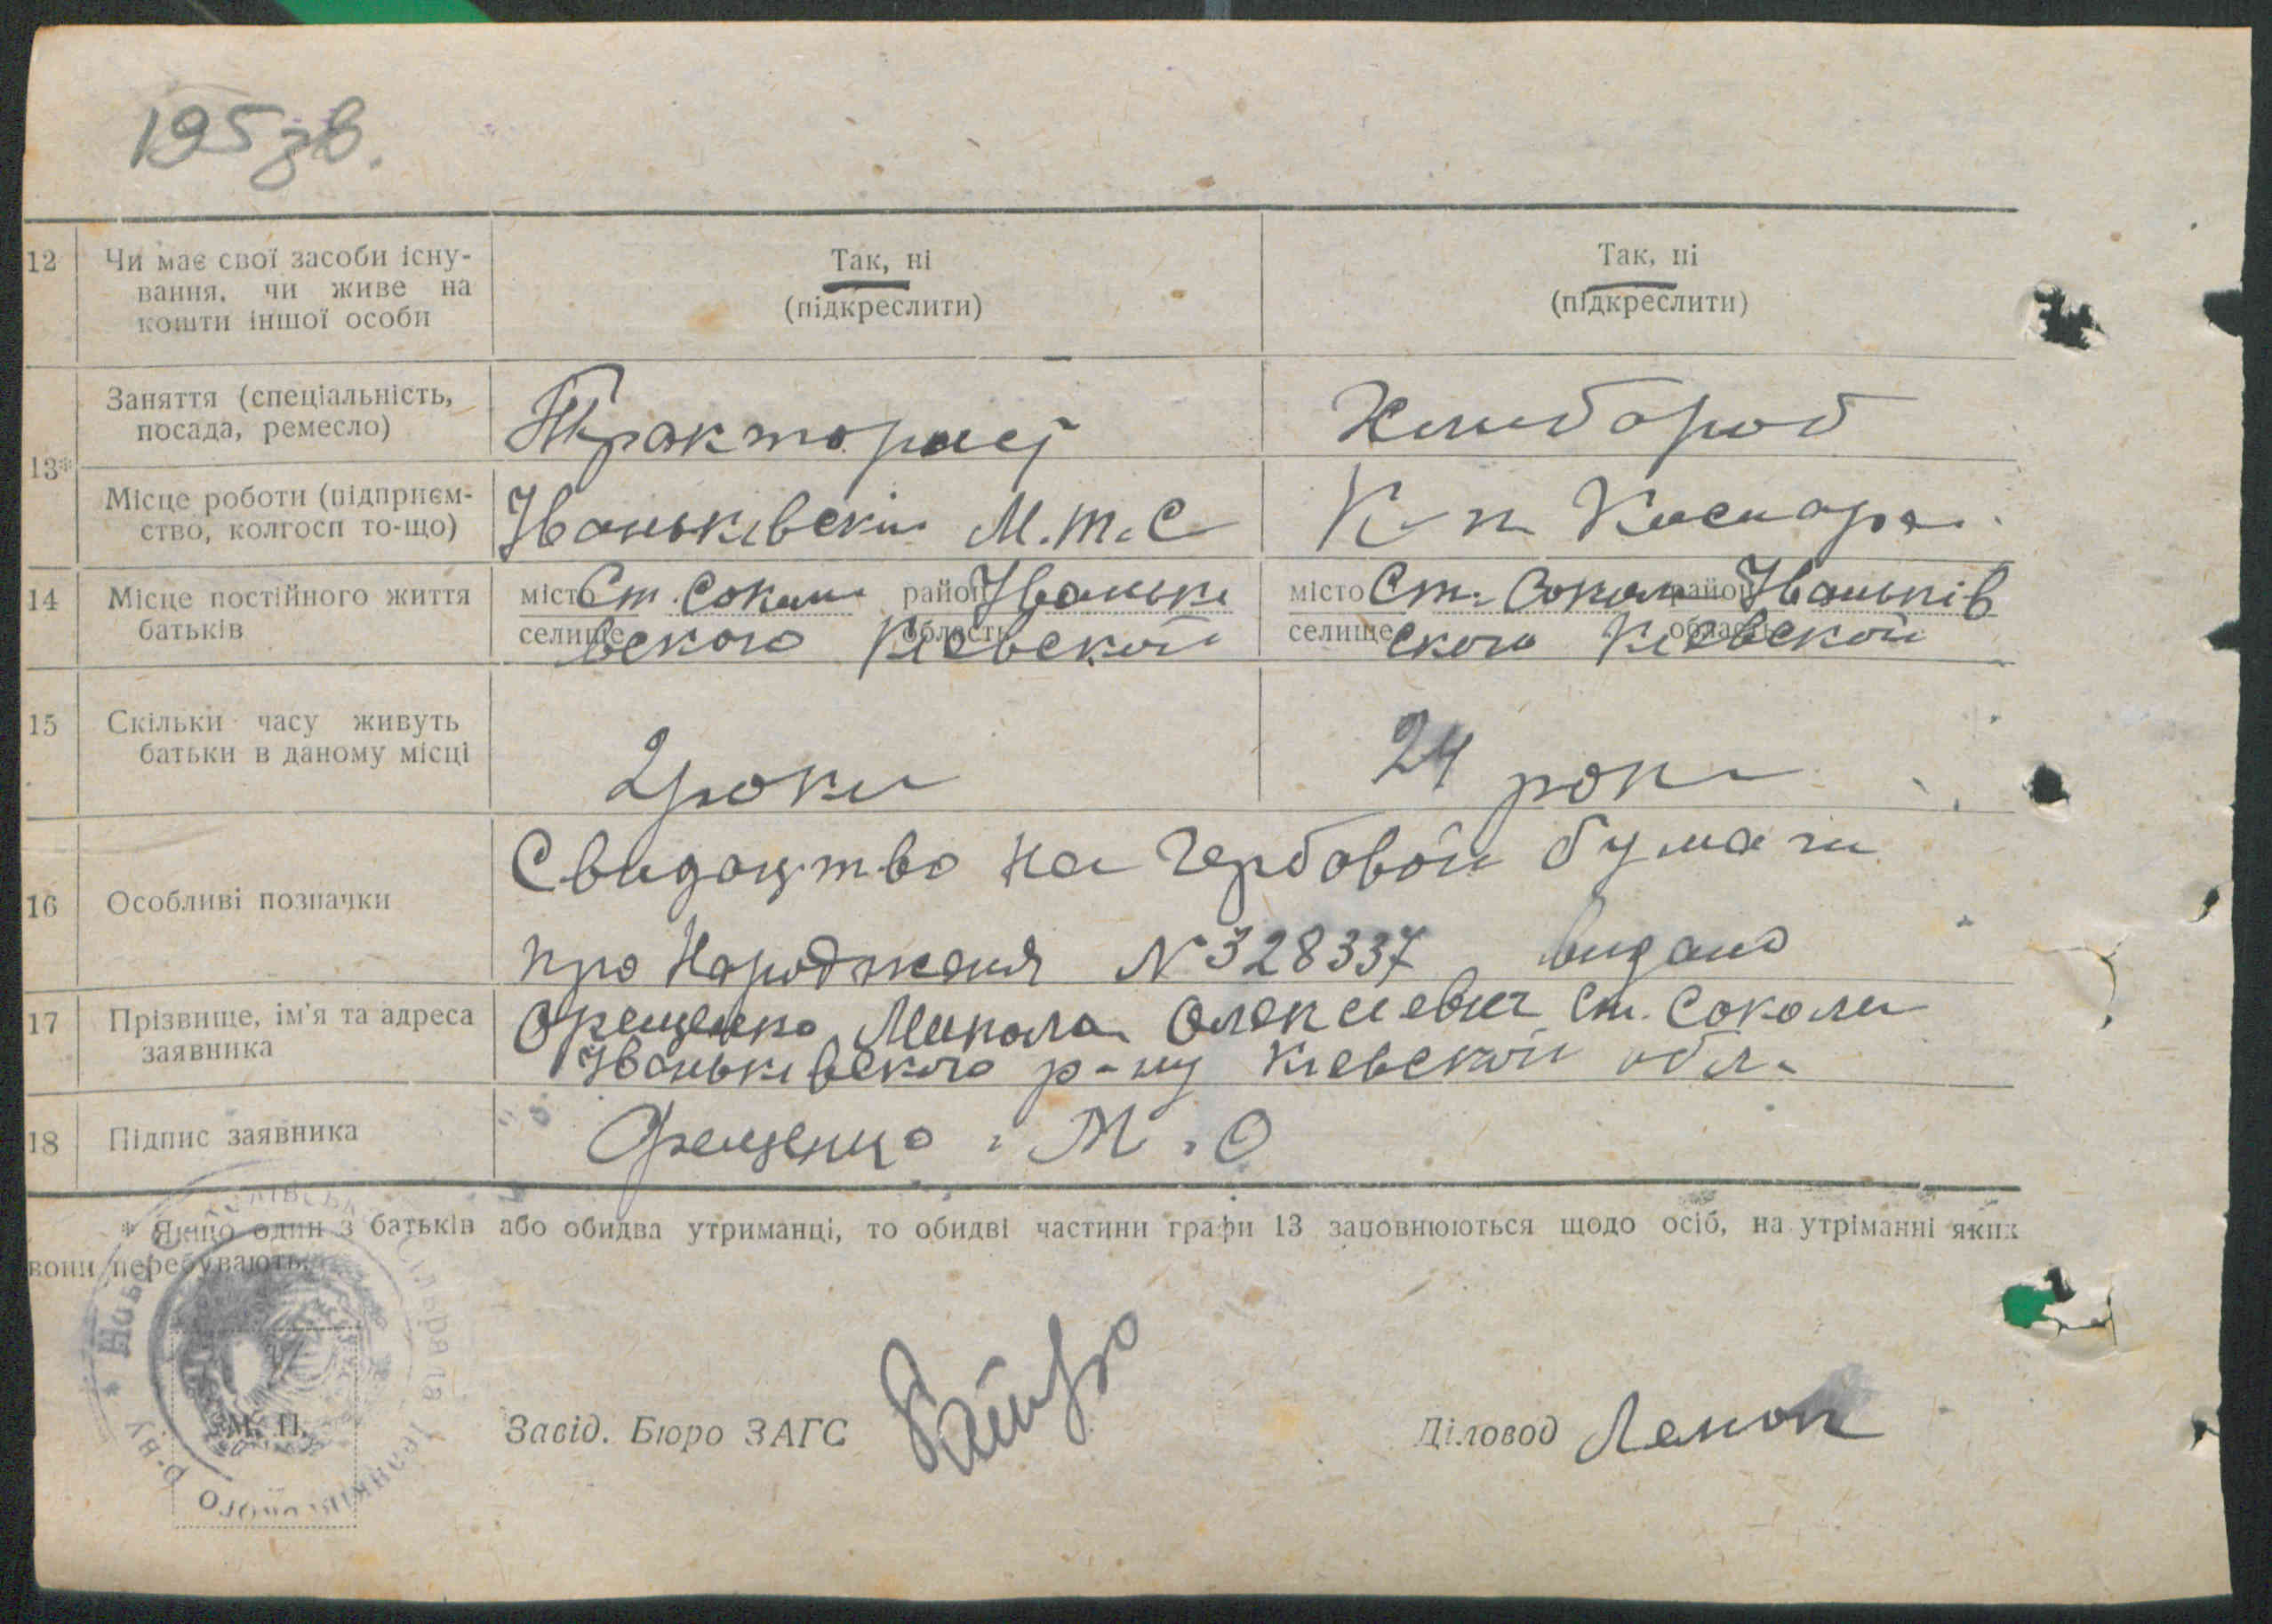 195 зв.
12 Чи має свої засоби існу-
вання, чи живе на
кошти іншої особи
Так, ні
(підкреслити)
Так, ні
(підкреслити)
13*
Заняття (спеціальність,
посада, ремесло)
Тракторист
Хлибороб
Місце роботи (підприєм-
ство, колгосп то-що)
Иваньківский М.т.С
К-п
14 Місце постійного життя
батьків
місто Ст. Соколи район Иваньки
селище вского область Киевской
місто Ст. Соколи район Иваньків
селище ского область Киевской
15 Скільки часу живуть
батьки в даному місці
2 роки
24 роки
16 Особливі позначки
Свидоцтво на Гербовой бумаги
про Народження № 328337 видано
17 Прізвище, ім'я та адреса
заявника
Орещенко Микола Олексиевич Ст. Соколи
Иваньківского р-ну Киевской обл.
18 Підпис заявника
Орещенко. М. О
* Якщо один з батьків або обидва утриманці, то обидві частини графи 13 заповнюються щодо осіб, на утріманні яких
вони перебувають.
М. П.
Завід. Бюро ЗАГС
Діловод